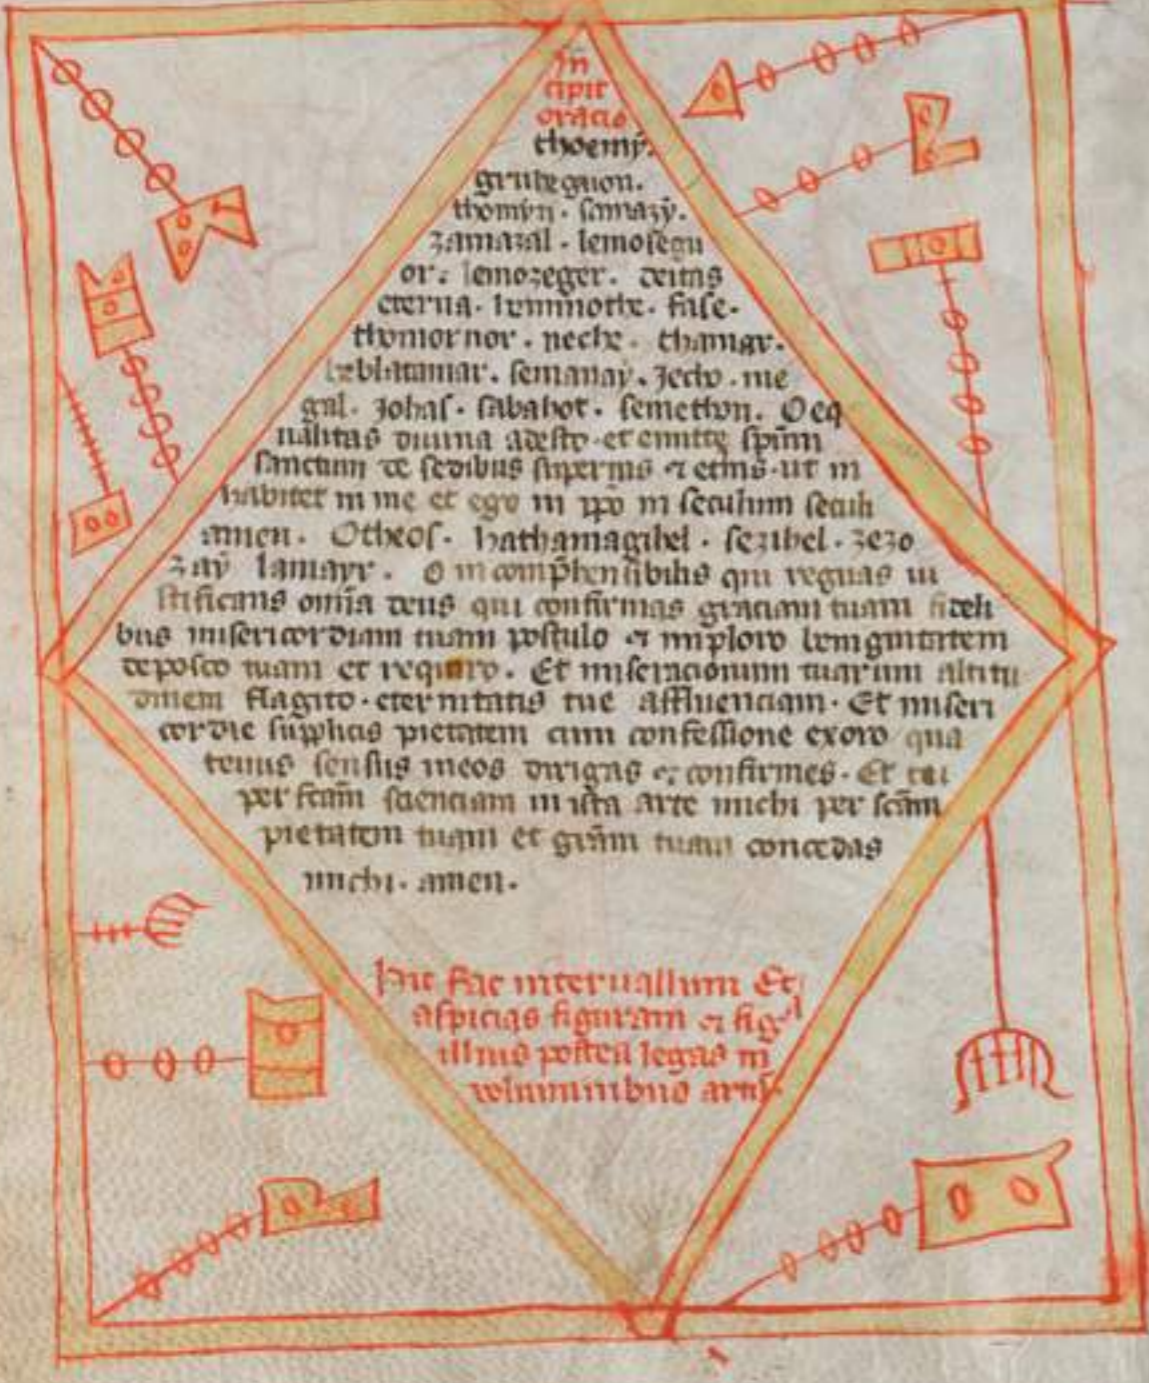 In
cipit
oracio
thoemy.
grutheguon.
thomyn. semazy.
zamazal. lemosegu
or. lemozeger. deitas
eterna. hemmothe. fase.
thomornor. neche. thamar.
semanay. zecto. me
gal. zohas. sabahot. semethon. O eq
ualitas diuina adesto. et emitte spm
sanctum de sedibus supernis et ut in
habitet in me et ego in ppo in seculum seculi
amen. Otheos. hathamagihel. sezihel. zezo
zay lamayr. O incomprehensibilis qui regnas iu
stificans omia deus qui confirmas graciam tuam fideli
bus misericordiam tuam postulo et imploro benignitatem
deposco tuam et requiro. Et miseracionum tuarum altitu
dinem flagito. eternitatis tue affluenciam. Et miseri
cordie supplicis pietatem cum confessione exoro qua
tenus sensus meos dirigas et confirmes. Et
perfcam scienciam in ista arte michi per scam
pietatem tuam et gram tuam concedas
michi. amen.
Hic fac interuallum Et
aspicias figuram et sig
illius postea legas in
voluminibus artis